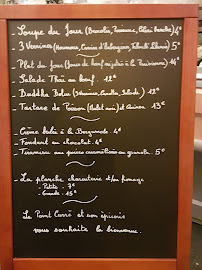 - Soupe du Jour (Brocolis, Romanesco, Céleri branche) 4€
- 3 Verrines (Houmous, Caviar d'aubergines, Taboulé libanais) 5€
- Plat du Jour (Joue de boeuf mijotée à la Parisienne) 14€
- Salade Thaï au boeuf. 12€
- Buddha Bowl 12€
- Tartare de Poisson et Quinoa 13€
- Crème brûlée à la Bergamote. 4€
- Fondant au chocolat. 4€
- Tiramisu aux poires caramélisées au granola. 5€
- La planche charcuterie et/ou fromage
- Petite - 7€
- Grande - 15€
Le Point Carré et son épicerie
vous souhaite la bienvenue.